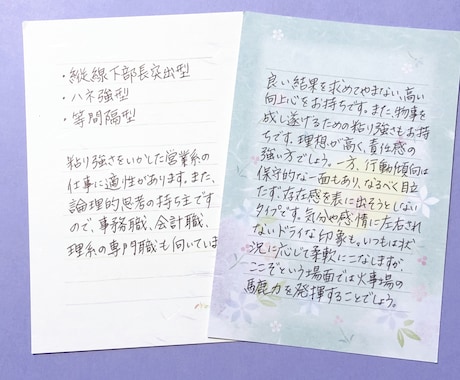 ・縦線下部長突出型
・ハネ強型
・等間隔型
粘り強さをいかした営業系の
仕事に適性があります。また、
論理的思考の持ち主です
ので、事務職、会計職、
理系の専門職も向いていま
良い結果を求めてやまない、高い
向上心をお持ちです。また、物事を
成し遂げるための粘り強さもお持
ちです。理想が高く、責任感の
強い方でしょう。一方、行動傾向は
保守的な一面もあり、なるべく目立
たず、存在感を表に出そうとしない
タイプです。気分や感情に左右され
ないドライな印象も。いつもは状
況に応じて柔軟にこなしますが、
ここぞという場面では火事場の
馬鹿力を発揮することでしょう。